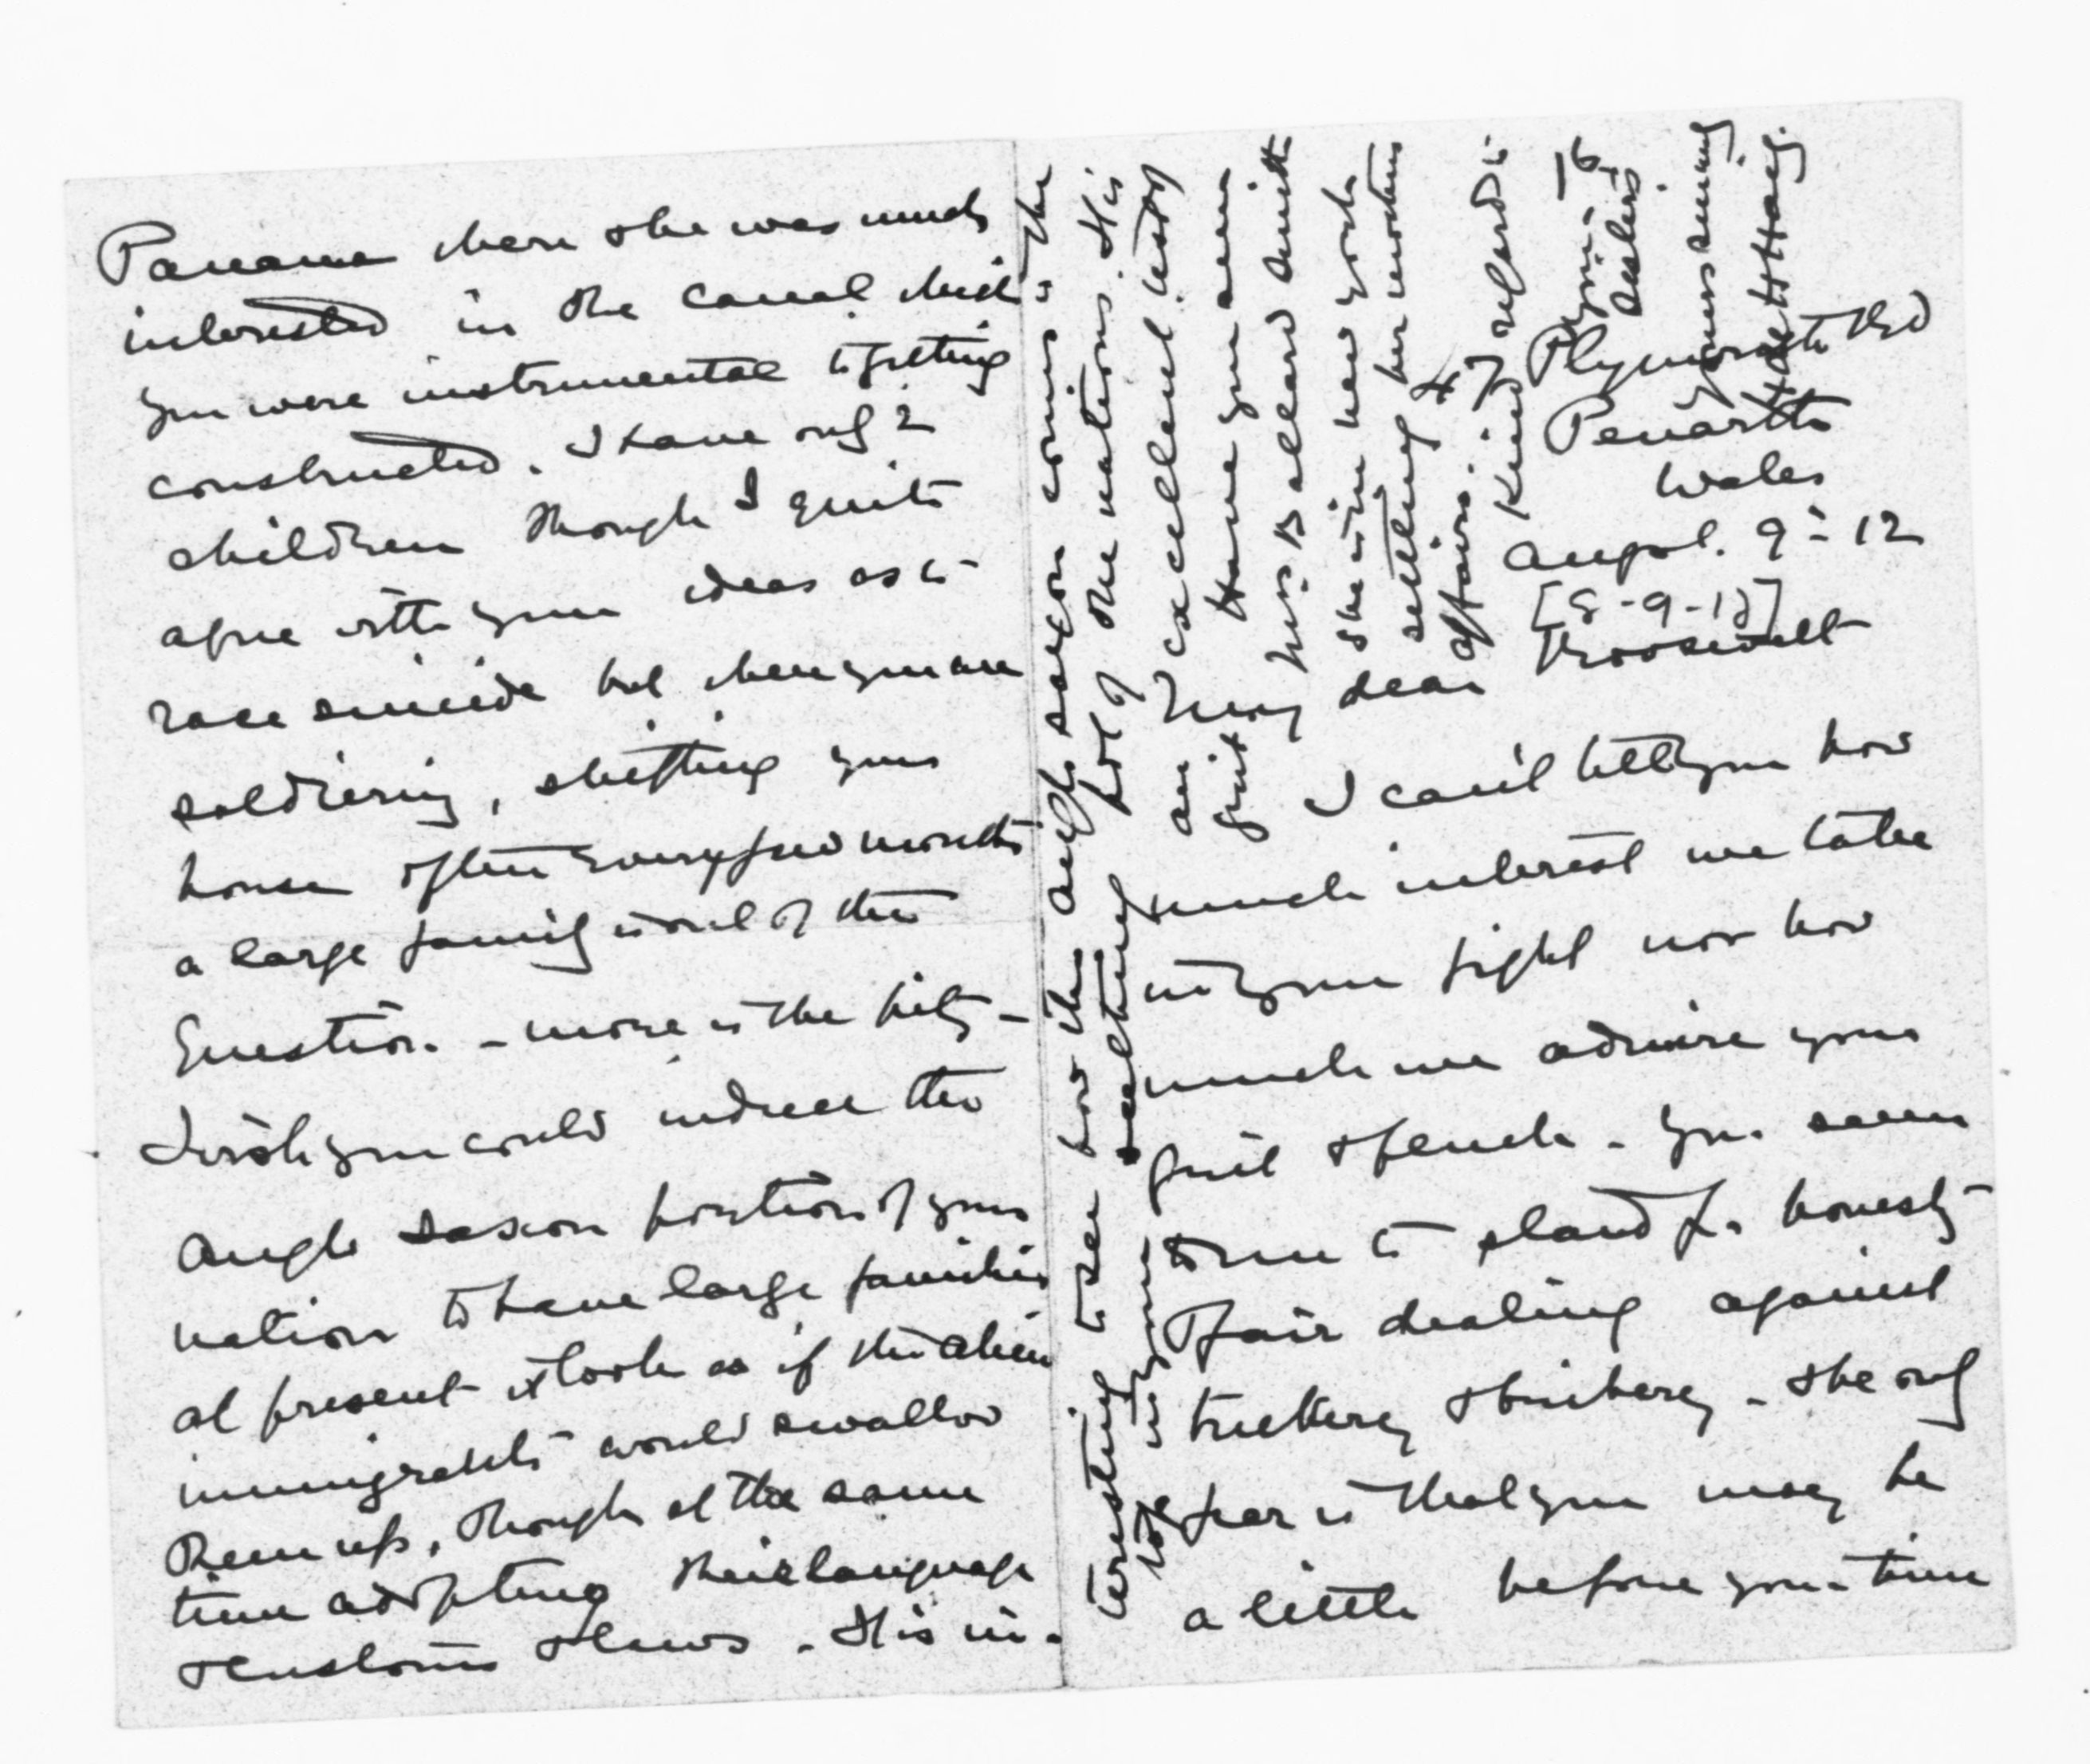 Plymouth Rd
Penarth
Wales
August. 9 - 12
[8-9-12]
My dear Roosevelt
I can't tell you how
much interest we take
in your fight nor how
much we admire your
grit & pluck - You seem
to me to stand for honesty
& fair dealing against
trickery & bribery - The only
fear is that you may be
a little before your time
Panama where she was much
interested in the canal which
you were instrumental to getting
constructed. I have only 2
children though I quite
agree with your ideas as to
race suicide but when you are
soldiering, shifting your
house often every few months
a large family is out of the
question. - more is the pity -
I wish you could induce the
Anglo Saxon portion of your
nation to have large families
at present it looks as if the alien
immigrants would swallow
them up, though at the same
time adopting their language
& customs & laws. It is in-
teresting to see how the Anglo Saxon comes to the
top in your seething pot of the nations. It is
an excellent test of
grit. Have you seen
Mrs Ballard Smith
she is in New York
settling her mothers
affairs.
Kind regards to
your
sisters.
Yours sincerely
H de H Haig.